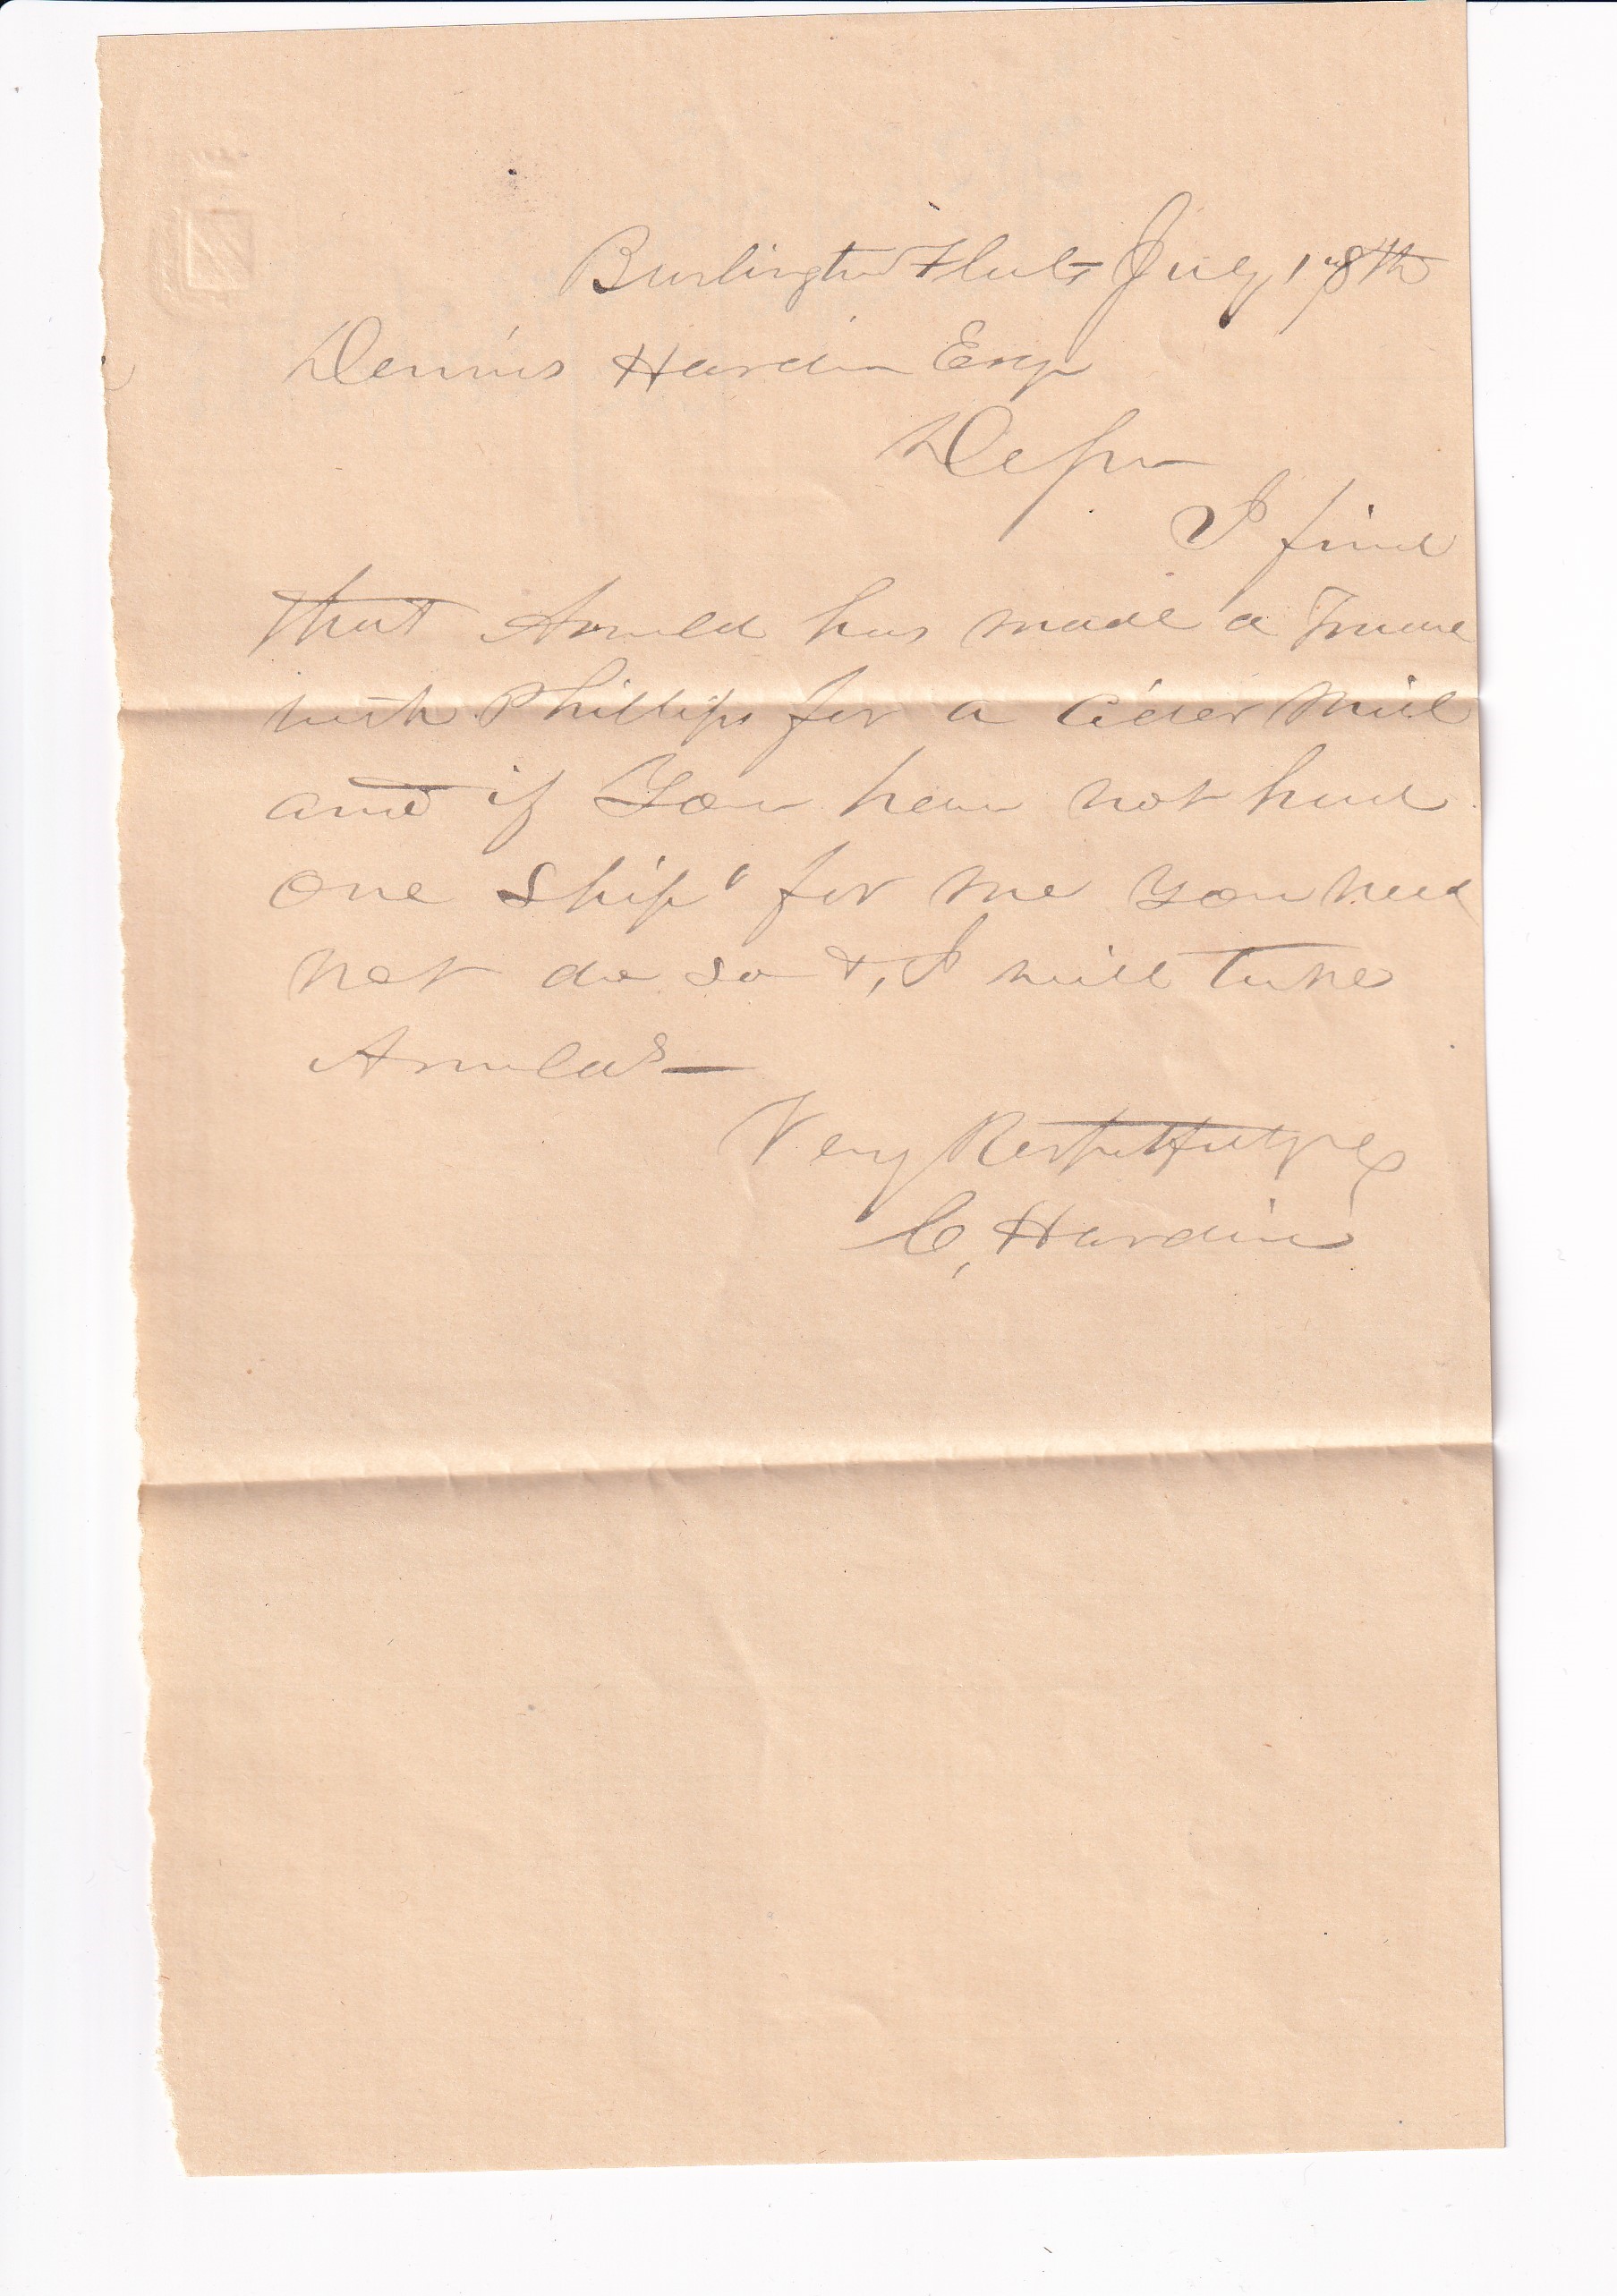 Burlington Flats July 18th
Dennis Hardin Esq
De Sir
I find
that Arnold has made a Trade
with Phillips for a Cider Mill
and if You have not had
one Ship'd for me you need
not do so &, I will take
Arnolds —
Very Respectfully
C, Hardin